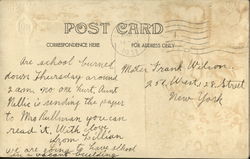 POST CARD
CORRESPONDENCE HERE
FOR ADDRESS ONLY
school burned
down Thursday around
2 am. no one hurt. Aunt
is sending the paper
to Mrs Pullman you can
read it. With love
from Lillian
we are going to have school
in a vacant building
Frank Wilson
West 28 Street
New York